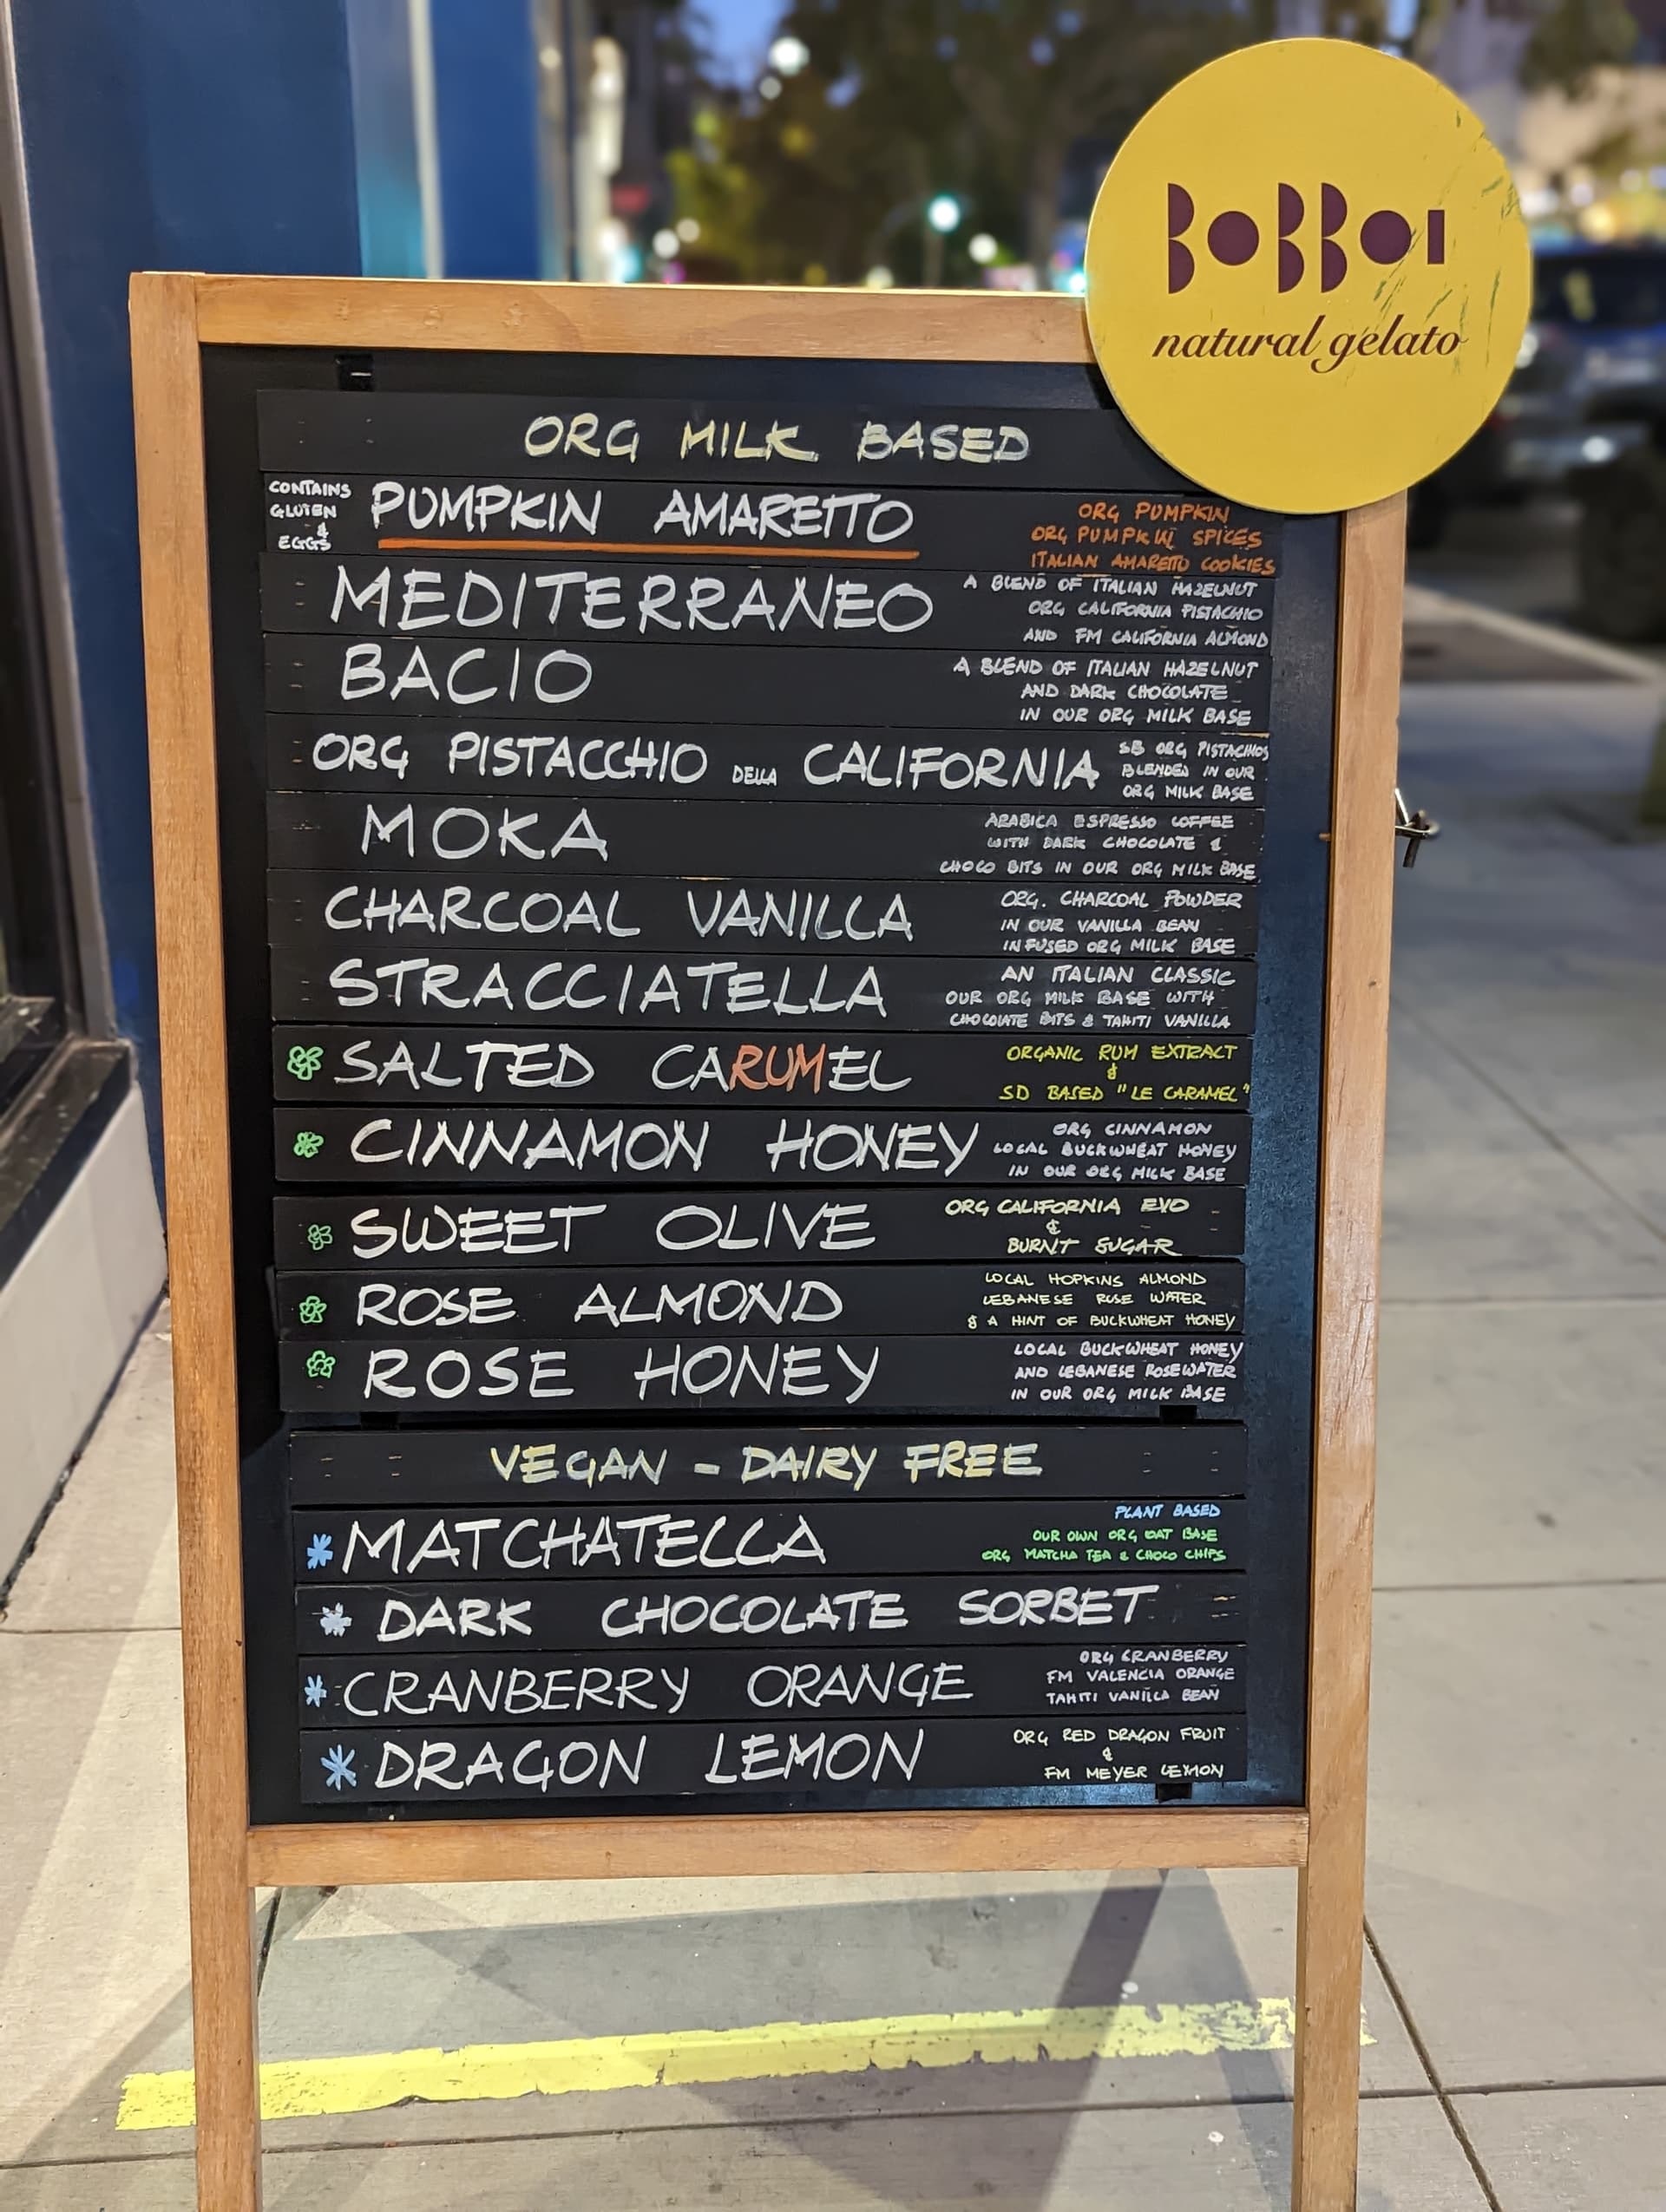 BOBBOI
natural gelato
ORG MILK BASED
CONTAINS
GLUTEN
&
EGGS
PUMPKIN AMARETTO
ORG PUMPKIN
ORG PUMPKIN SPICES
ITALIAN AMARETTO COOKIES
MEDITERRANEO
A BLEND OF ITALIAN HAZELNUT
ORG CALIFORNIA PISTACHIO
AND FM CALIFORNIA ALMOND
BACIO
A BLEND OF ITALIAN HAZELNUT
AND DARK CHOCOLATE
IN OUR ORG MILK BASE
ORG PISTACCHIO DELLA CALIFORNIA
SB ORG PISTACHIOS
BLENDED IN OUR
ORG MILK BASE
MOKA
ARABICA ESPRESSO COFFEE
WITH DARK CHOCOLATE &
CHOCO BITS IN OUR ORG MILK BASE
CHARCOAL VANILLA
ORG. CHARCOAL POWDER
IN OUR VANILLA BEAN
INFUSED ORG MILK BASE
STRACCIATELLA
AN ITALIAN CLASSIC
OUR ORG MILK BASE WITH
CHOCOLATE BITS & TAHITI VANILLA
SALTED CARUMEL
ORGANIC RUM EXTRACT
&
SD BASED "LE CARAMEL"
CINNAMON HONEY
ORG CINNAMON
LOCAL BUCKWHEAT HONEY
IN OUR ORG MILK BASE
SWEET OLIVE
ORG CALIFORNIA EVO
&
BURNT SUGAR
ROSE ALMOND
LOCAL HOPKINS ALMOND
LEBANESE ROSE WATER
& A HINT OF BUCKWHEAT HONEY
ROSE HONEY
LOCAL BUCKWHEAT HONEY
AND LEBANESE ROSEWATER
IN OUR ORG MILK BASE
VEGAN - DAIRY FREE
* MATCHATELLA
PLANT BASED
OUR OWN ORG OAT BASE
ORG MATCHA TEA & CHOCO CHIPS
* DARK CHOCOLATE SORBET
* CRANBERRY ORANGE
ORG CRANBERRY
FM VALENCIA ORANGE
TAHITI VANILLA BEAN
* DRAGON LEMON
ORG RED DRAGON FRUIT
&
FM MEYER LEMON